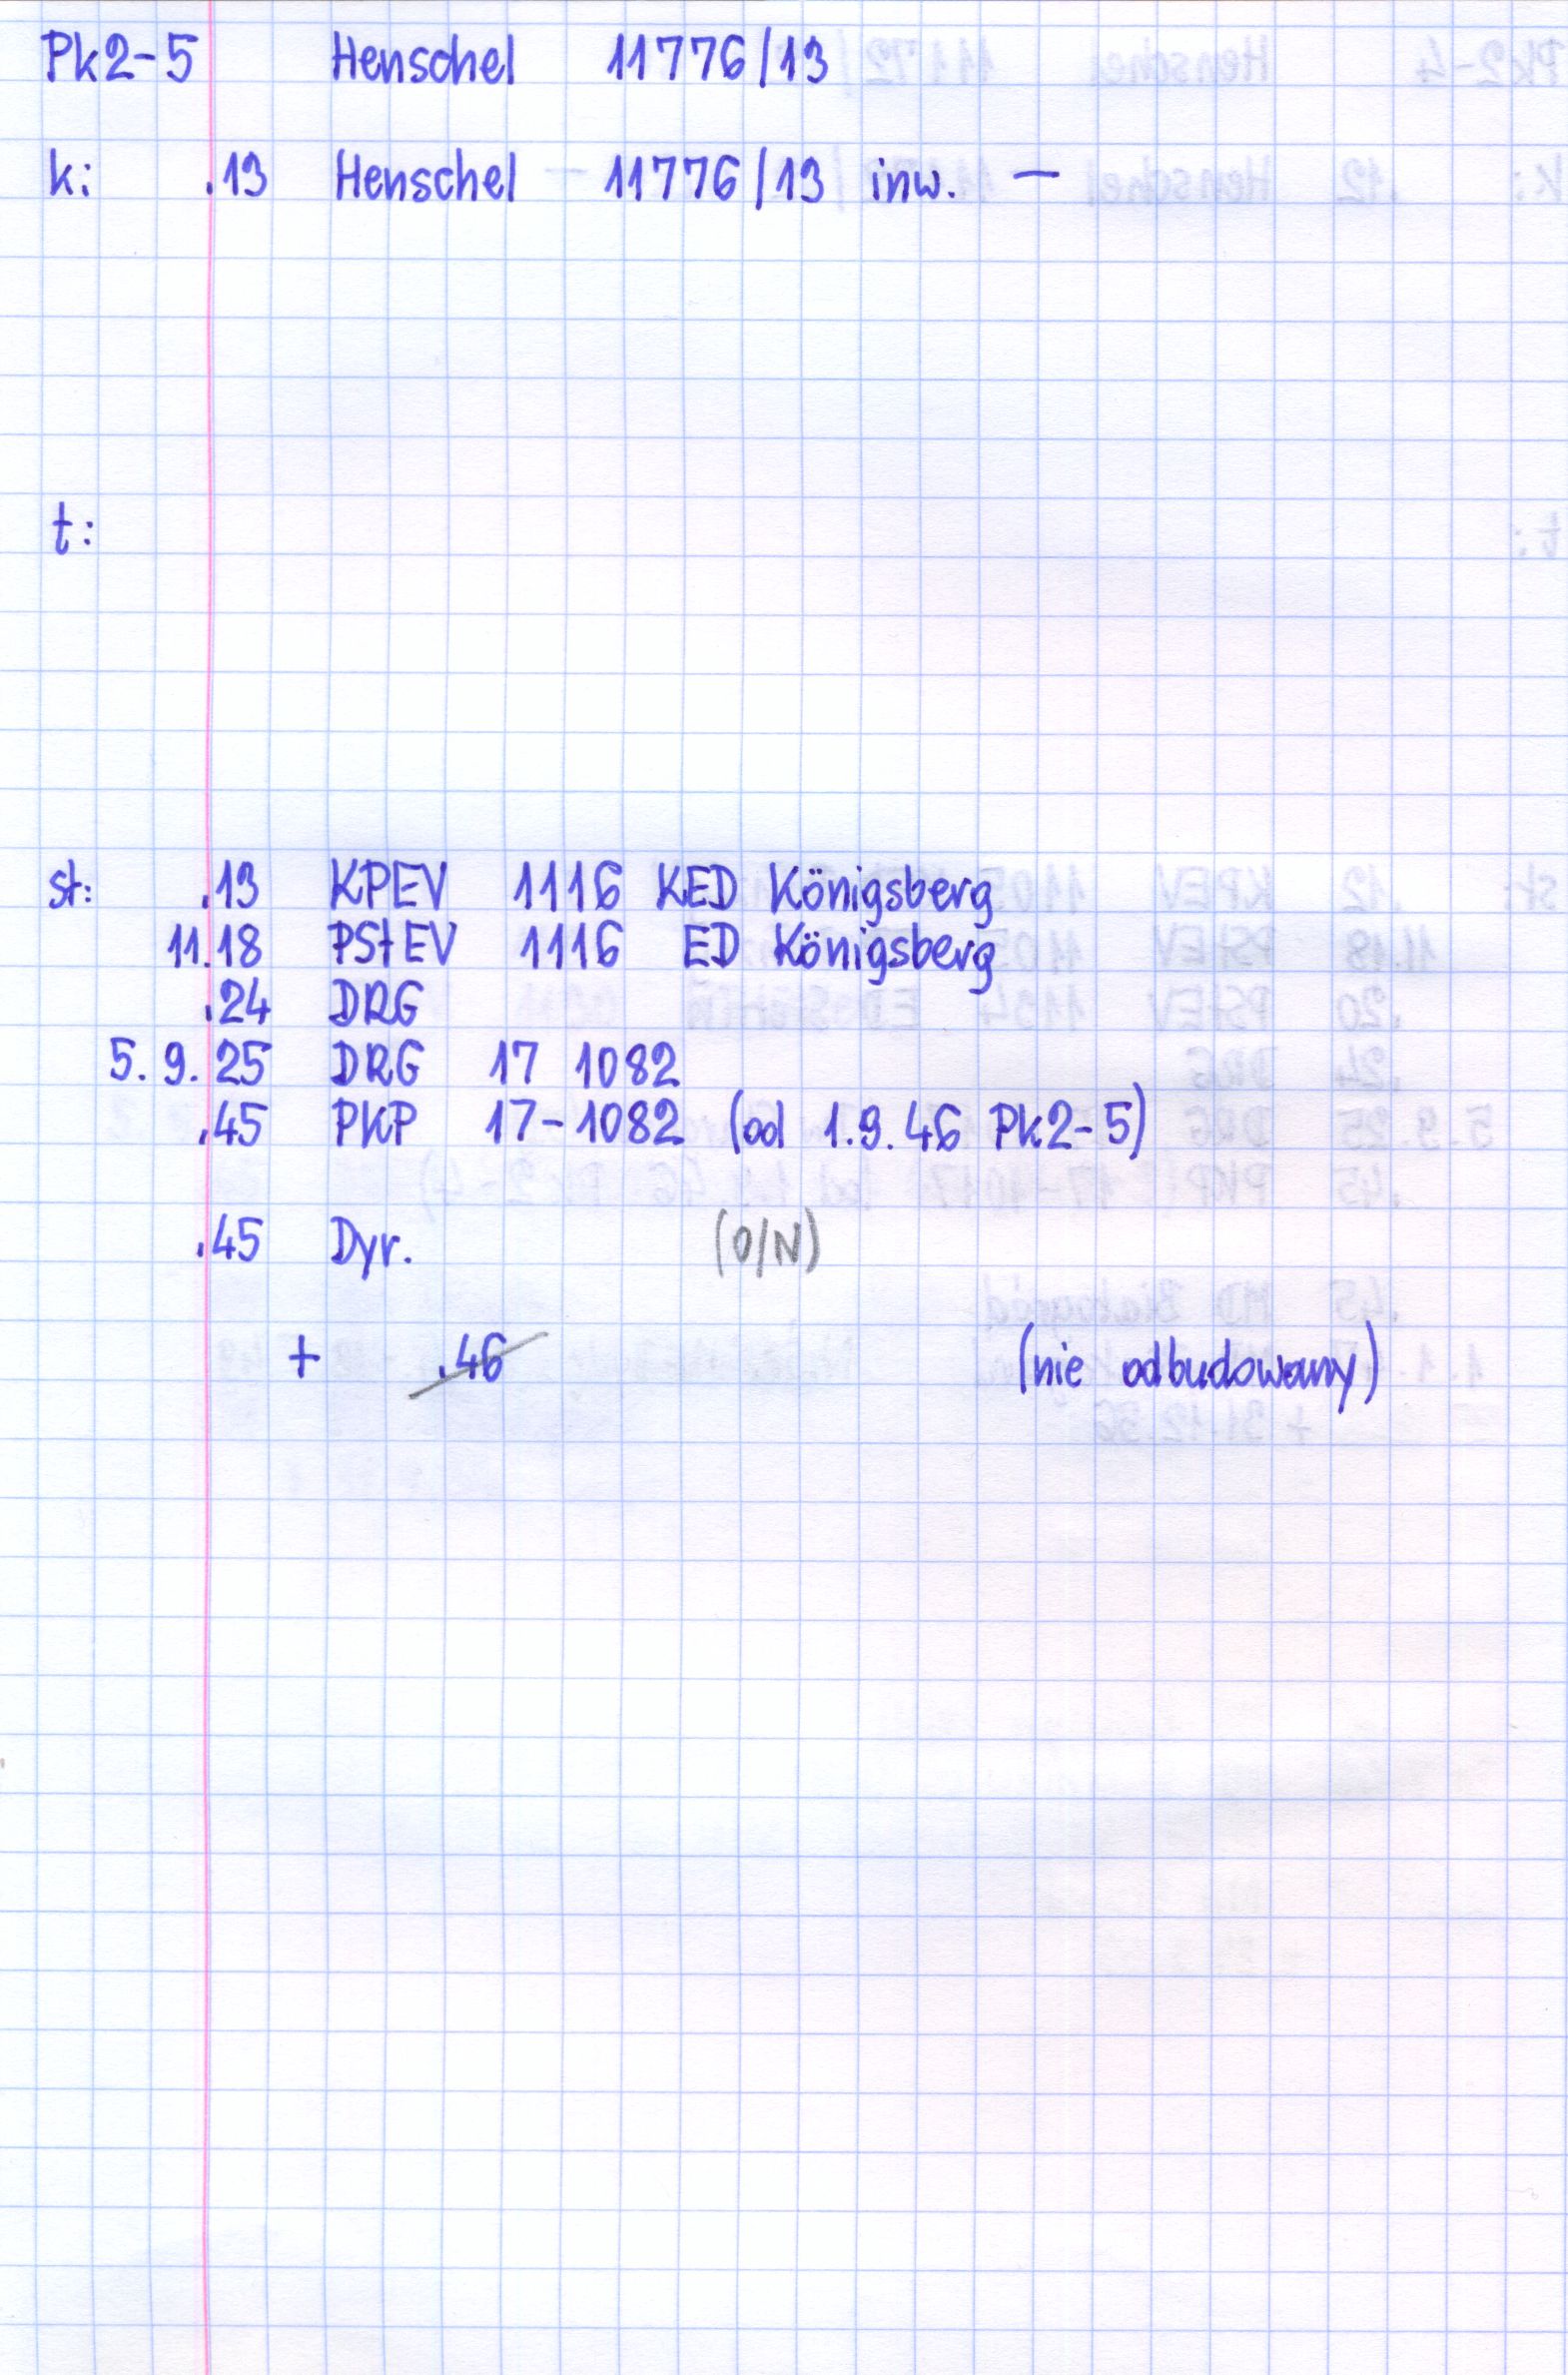 Pk2-5 Henschel 11776/13
k: .13 Henschel 11776/13 inw. —
t:
st: .13 KPEV 1116 KED Königsberg
11.18 PStEV 1116 ED Königsberg
.24 DRG
5.9.25 DRG 17 1082
.45 PKP 17-1082 (od 1.9.46 Pk2-5)
.45 Dyr. (O/N)
+ .46 (nie odbudowany)